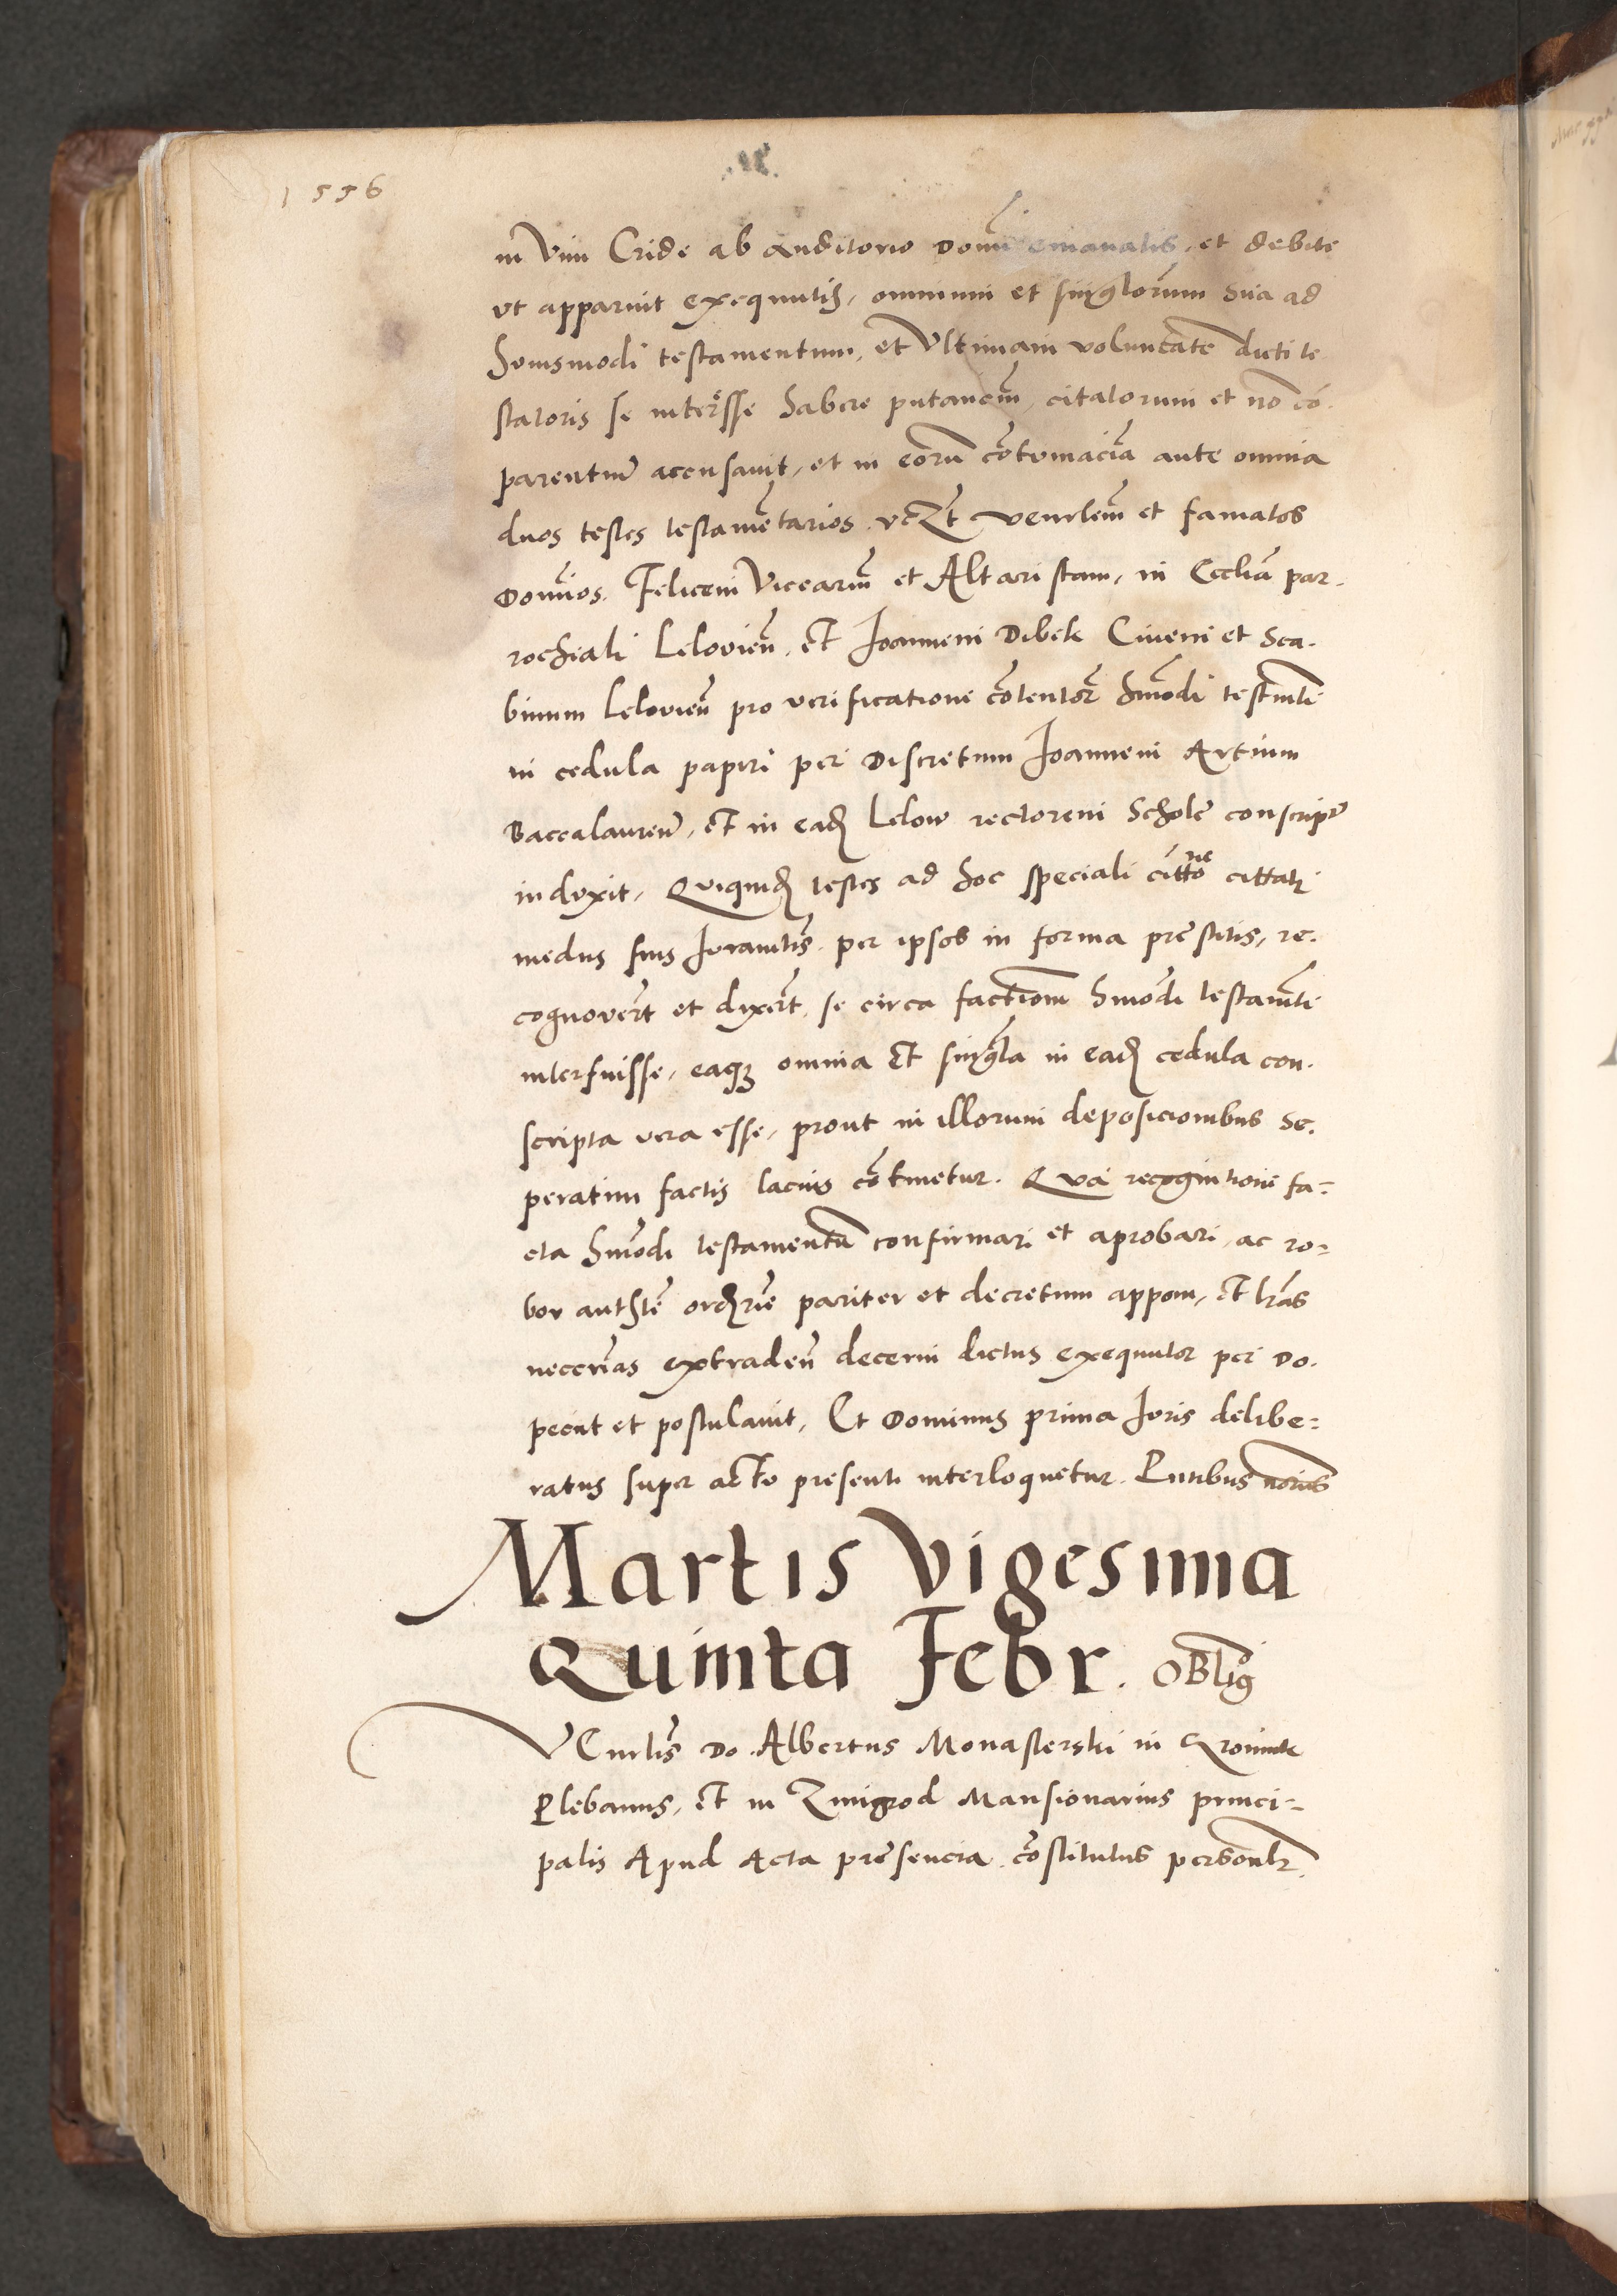 1556
in vim Cride ab auditorio Domi emanatis, et debite
vt apparuit exequutis, omnium et singlorum sua ad
huiusmodi testamentum, et vltimam voluntate dicti te
statoris se interesse habere putancm, citatorum et no co.
parentiu accusauit, et in eoru cotumacia ante omnia
duos testes testametarios. vczt venrlem et famatos
Domios. Felicem Vicearium et Altaristam, in Ecclia par.
rochiali Lelovien, et Joannem Dibek Ciuem et Sca.
binum Lelovien pro verificatione cotentor hmodi testmti
in cedula papiri per Discretum Joannem Artium
Baccalaureu, et in ead Lelow rectorem Schole conscript
induxit, Quiquid testes ad hoc speciali cittone cittati
medus suis Juramtis per ipsos in forma prestitis, re.
cognovert et dixert, se circa factiom hmodi testamti
interfuisse, eaqz omnia et singla in ead cedula con.
scripta vera esse, prout in illorum deposicionibus se.
peratim factis lacius cotinetur. Qua recognitione fa=
cta hmodi testamentu confirmari et aprobari, ac ro=
bor authte ordrie pariter et decretum apponi, et lras
necerias extraden decerni dictus exequutor per Do.
peciit et postulauit, Et Dominus prima Juris delibe=
ratus super acto presenti interloquetur. Pntibus
Martis vigesima
Quinta Febr. Oblig
VEnrlis Do. Albertus Monasterski in
Plebanus, et in Zmigrod Mansionarius princi=
palis Apud Acta presencia costitutus personlr